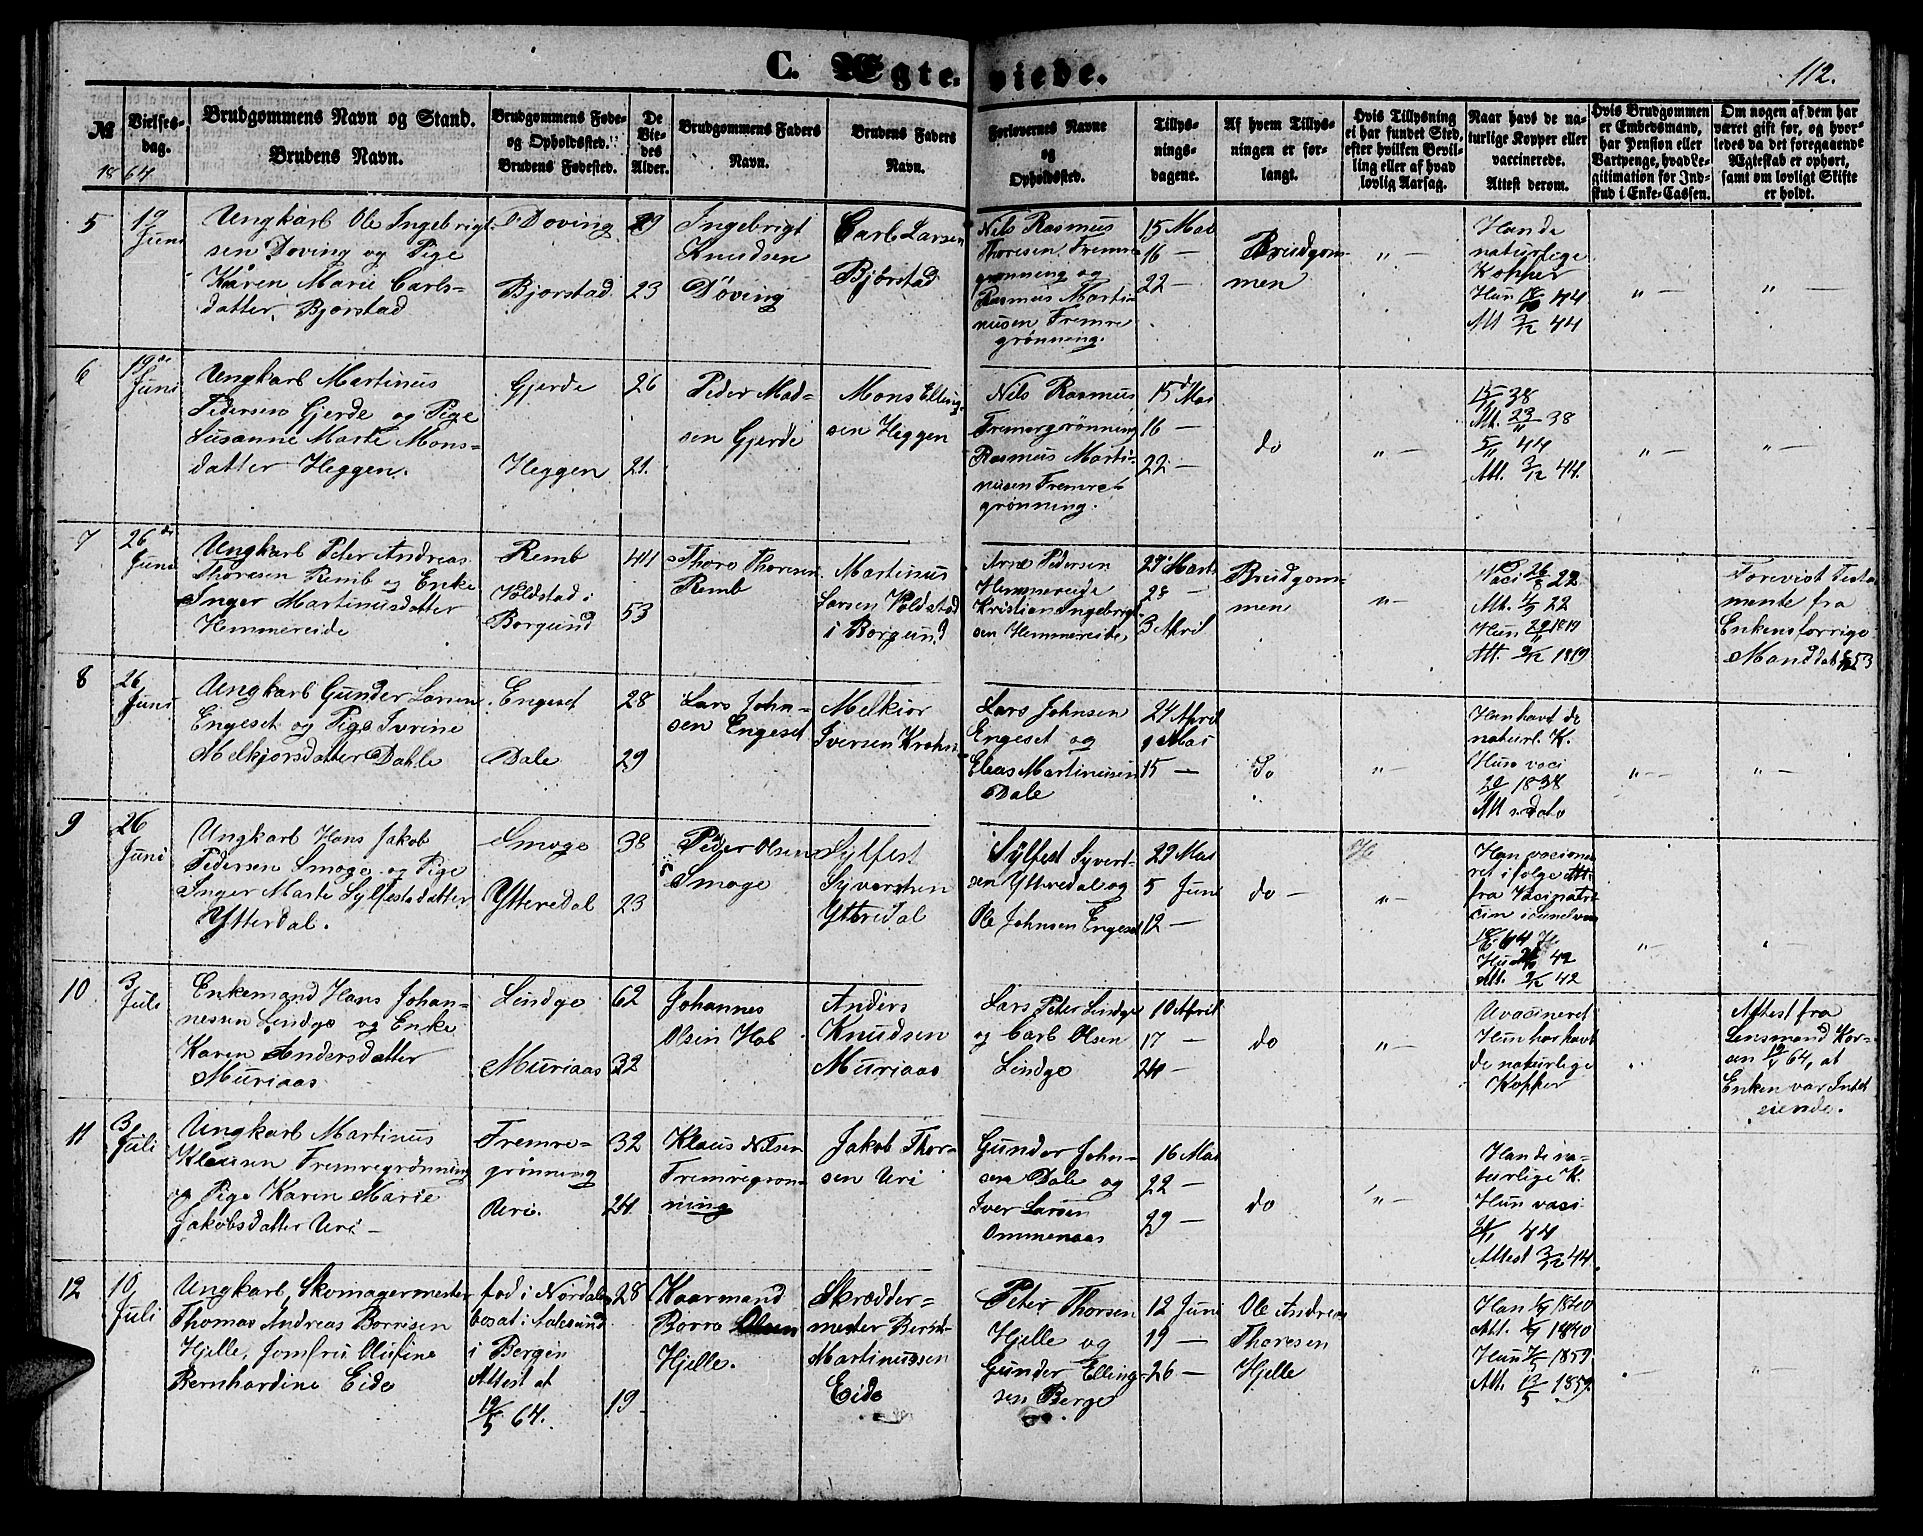 C. Ægteviede.
112.
№
1864
Vielses-
dag.
Brudgommens Navn og Stand.
Brudens Navn.
Brudgommens Føde-
og Opholdssted.
Brudens Fødested.
De
Vie-
des
Alder.
Brudgommens Faders
Navn.
Brudens Faders
Navn.
Forlovernes Navne
og
Opholdssted.
Tillys-
nings-
dagene.
Af hvem Tillys-
ningen er for-
langt.
Hvis Tillysning
ei har fundet Sted,
efter hvilken Bevil-
ling eller af hvad
lovlig Aarsag.
Naar havt de na-
turlige Kopper eller
vaccinerede.
Attest derom.
Hvis Brudgommen
er Embedsmand,
har Pension eller
Vartpenge, hvad Le-
gitimation for Ind-
skud i Enke-Cassen.
Om nogen af dem har
været gift før, og hvor-
ledes da det foregaaende
Ægteskab er ophørt,
samt om lovligt Skifte
er holdt.
5
19
Juni
Ungkarl Ole Ingebrigt-
sen Døving og Pige
Karen Marie Carls-
datter, Bjorstad
Døving
Bjorstad
29
23
Ingebrigt
Knudsen
Døving
Carl Larsen
Bjørstad
Nils Rasmus
Thoresen Fremre
grønning og
Rasmus Marti-
nusen Fremre
grønning.
15 Mai
16 —
22 —
Brudgom-
men
" —
Han de
naturlige
Kopper
Hun 44
Att 3/12 44
" —
" —
6
19de
Juni
Ungkarl Martinus
Pedersen Gjerde og Pige
Susanne Marte Mons-
datter Heggen.
Gjerde
Heggen
26
21.
Peder Mad-
sen Gjerde
Mons Elling-
sen Heggen
Nils Rasmus
Fremergrønning
Rasmus Marti-
nusen Fremre
grønning.
15d Mai
16 —
22 —
do
" —
38
Att. 23/11 38
5/11 44
Att. 3/12 44.
" —
" —
7
26de
Juni
Ungkarl Peter Andreas
Thoresen Remb og Enke
Inger Martinusdatter
Hemmereide
Remb
Voldstad i
Borgund
44
53
Thore Thoresen
Remb
Martinus
Larsen Voldstad
i Borgund
Arne Pedersen
Hemmereide
Kristian Ingebrigt-
sen Hemmereide,
27 Marts
28 —
3 April
Brudgom-
men
" —
Vaci 26 22
Att. 22
Hun 1819
Att. 1819
Forevist Testa
mente fra
Enkens forrige
Mand dat 53
8
26
Juni
Ungkarl Gunder Larsen
Engeset og Pige Ivrine
Melkjorsdatter Dahle
Engeset
Dale
28
29
Lars John-
sen Engeset
Melkior
Iversen Krohn
Lars Johnsen
Engeset og
Elias Martinusen
Dale
24 April
1 Mai
15 —
do
" —
Han havt de
naturl. K.
Hun vaci
1838
Att s dato
" —
" —
9
26
Juni
Ungkarl Hans Jakob
Pedersen Smoge og Pige
Inger Marte Sylfestsdatter
Ytterdal.
Smoge
Ytteredal
38
23
Peder Olsen
Smoge
Sylfest
Syvertsen
Ytteredal
Sylfest Syvert-
sen Ytteredal og
Ole Johnsen Engeset
29 Mai
5 Juni
12 —
do —
" —
Han vacine
ret ifølge Att.
fra
64
Hun 42
Att. 42
" —
10
3
Juli
Enkemand Hans Johan-
nesen Lindge og Enke
Karen Andersdatter
Muriaas
Lindge
Muriaas
62
32
Johannes
Olsen Hol
Anders
Knudsen
Muriaas
Lars Peter Lindge
og Carl Olsen
Lindge
10 April
17 —
24 —
do
" —
Uvacineret
Hun har havt
de naturlige
Kopper
Attest fra
Lensmand Kor-
sen 64, at
Enken var Intet
eiende.
11
3
Juli
Ungkarl Martinus
Klausen Fremregrønning
og Pige Karen Marie
Jakobsdatter Uri —
Fremre-
grønning
Uri.
32
24.
Klaus Nilsen
Fremregrøn-
ning
Jakob Thor-
sen Uri
Gunder John-
sen Dale og
Iver Larsen
Ommenaas
16 Mai
22 —
29 —
do
" —
Han de na-
turlige K.
Hun vaci
44
Attest 3/12 44.
12
10
Juli
Ungkarl, Skomagermester
Thomas Andreas Borrisen
Hjelle, Jomfru Olufine
Bernhardine Eide
fød i Nordalen
bosat i Aalesund
i Bergen
Attest at
19/5 64.
28
19
Kaarmand
Borre Olsen
Hjelle.
Skrædder-
mester Bernt
Martinussen
Eide
Peter Thorsen
Hjelle og
Gunder Elling-
sen Berge
12 Juni
19 —
26 —
Ole Andreas
Thoresen
Hjelle
Han 1840
Att. 1840
Hun 1859
Att. 13/5 1859.